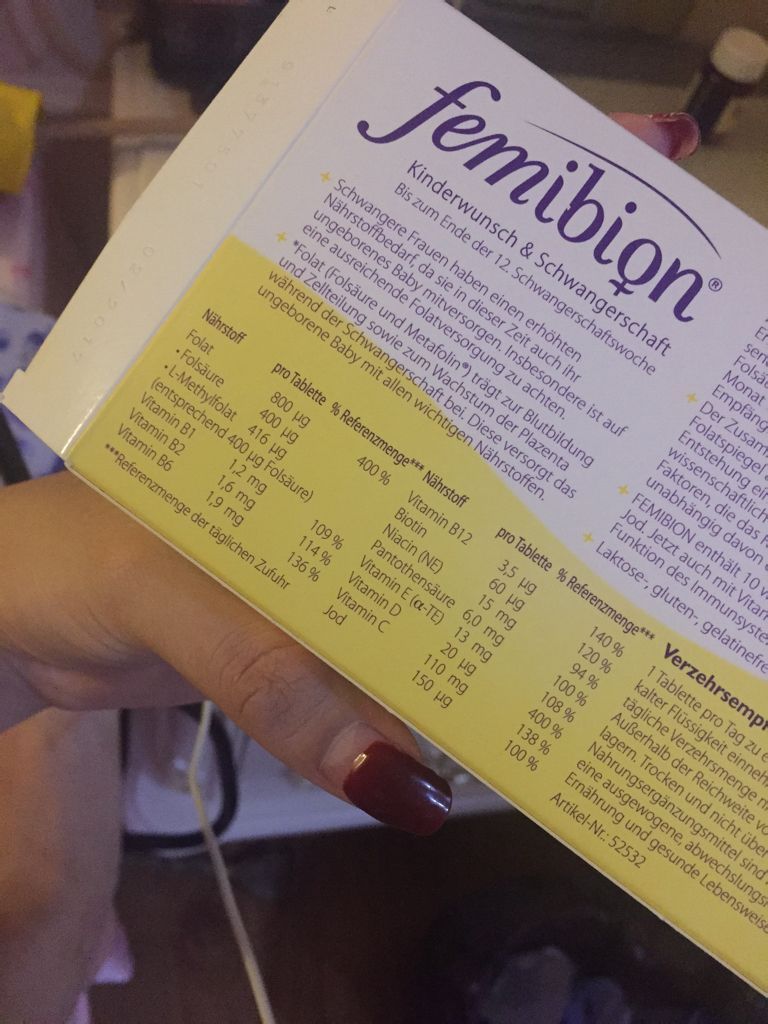 femibion®
Kinderwunsch & Schwangerschaft
Bis zum Ende der 12. Schwangerschaftswoche
Schwangere Frauen haben einen erhöhten
Nährstoffbedarf, da sie in dieser Zeit auch ihr
ungeborenes Baby mitversorgen. Insbesondere ist auf
eine ausreichende Folatversorgung zu achten.
*Folat (Folsäure und Metafolin®) trägt zur Blutbildung
und Zellteilung sowie zum Wachstum der Plazenta
während der Schwangerschaft bei. Diese versorgt das
ungeborene Baby mit allen wichtigen Nährstoffen.
Nährstoff pro Tablette % Referenzmenge***
Folat 800 µg 400 %
• Folsäure 400 µg
• L-Methylfolat 416 µg
(entsprechend 400 µg Folsäure)
Vitamin B1 1,2 mg 109 %
Vitamin B2 1,6 mg 114 %
Vitamin B6 1,9 mg 136 %
***Referenzmenge der täglichen Zufuhr
Nährstoff pro Tablette % Referenzmenge***
Vitamin B12 3,5 µg 140 %
Biotin 60 µg 120 %
Niacin (NE) 15 mg 94 %
Pantothensäure 6,0 mg 100 %
Vitamin E (α-TE) 13 mg 108 %
Vitamin D 20 µg 400 %
Vitamin C 110 mg 138 %
Jod 150 µg 100 %
Folsä
Monat
Empfäng
Der Zusam
Folatspiegel
wissenschaftlich
Entstehung ein
Faktoren, die das
unabhängig davon
FEMIBION enthält 10
Jod. Jetzt auch mit Vitam
Funktion des Immunsyste
Laktose-, gluten-, gelatinefre
Verzehrsempf
1 Tablette pro Tag zu e
kalter Flüssigkeit einneh
tägliche Verzehrsmenge
Außerhalb der Reichweite vo
lagern. Trocken und nicht über
Nahrungsergänzungsmittel sind
eine ausgewogene, abwechslungsr
Ernährung und gesunde Lebensweise
Artikel-Nr.: 52532
02/2017